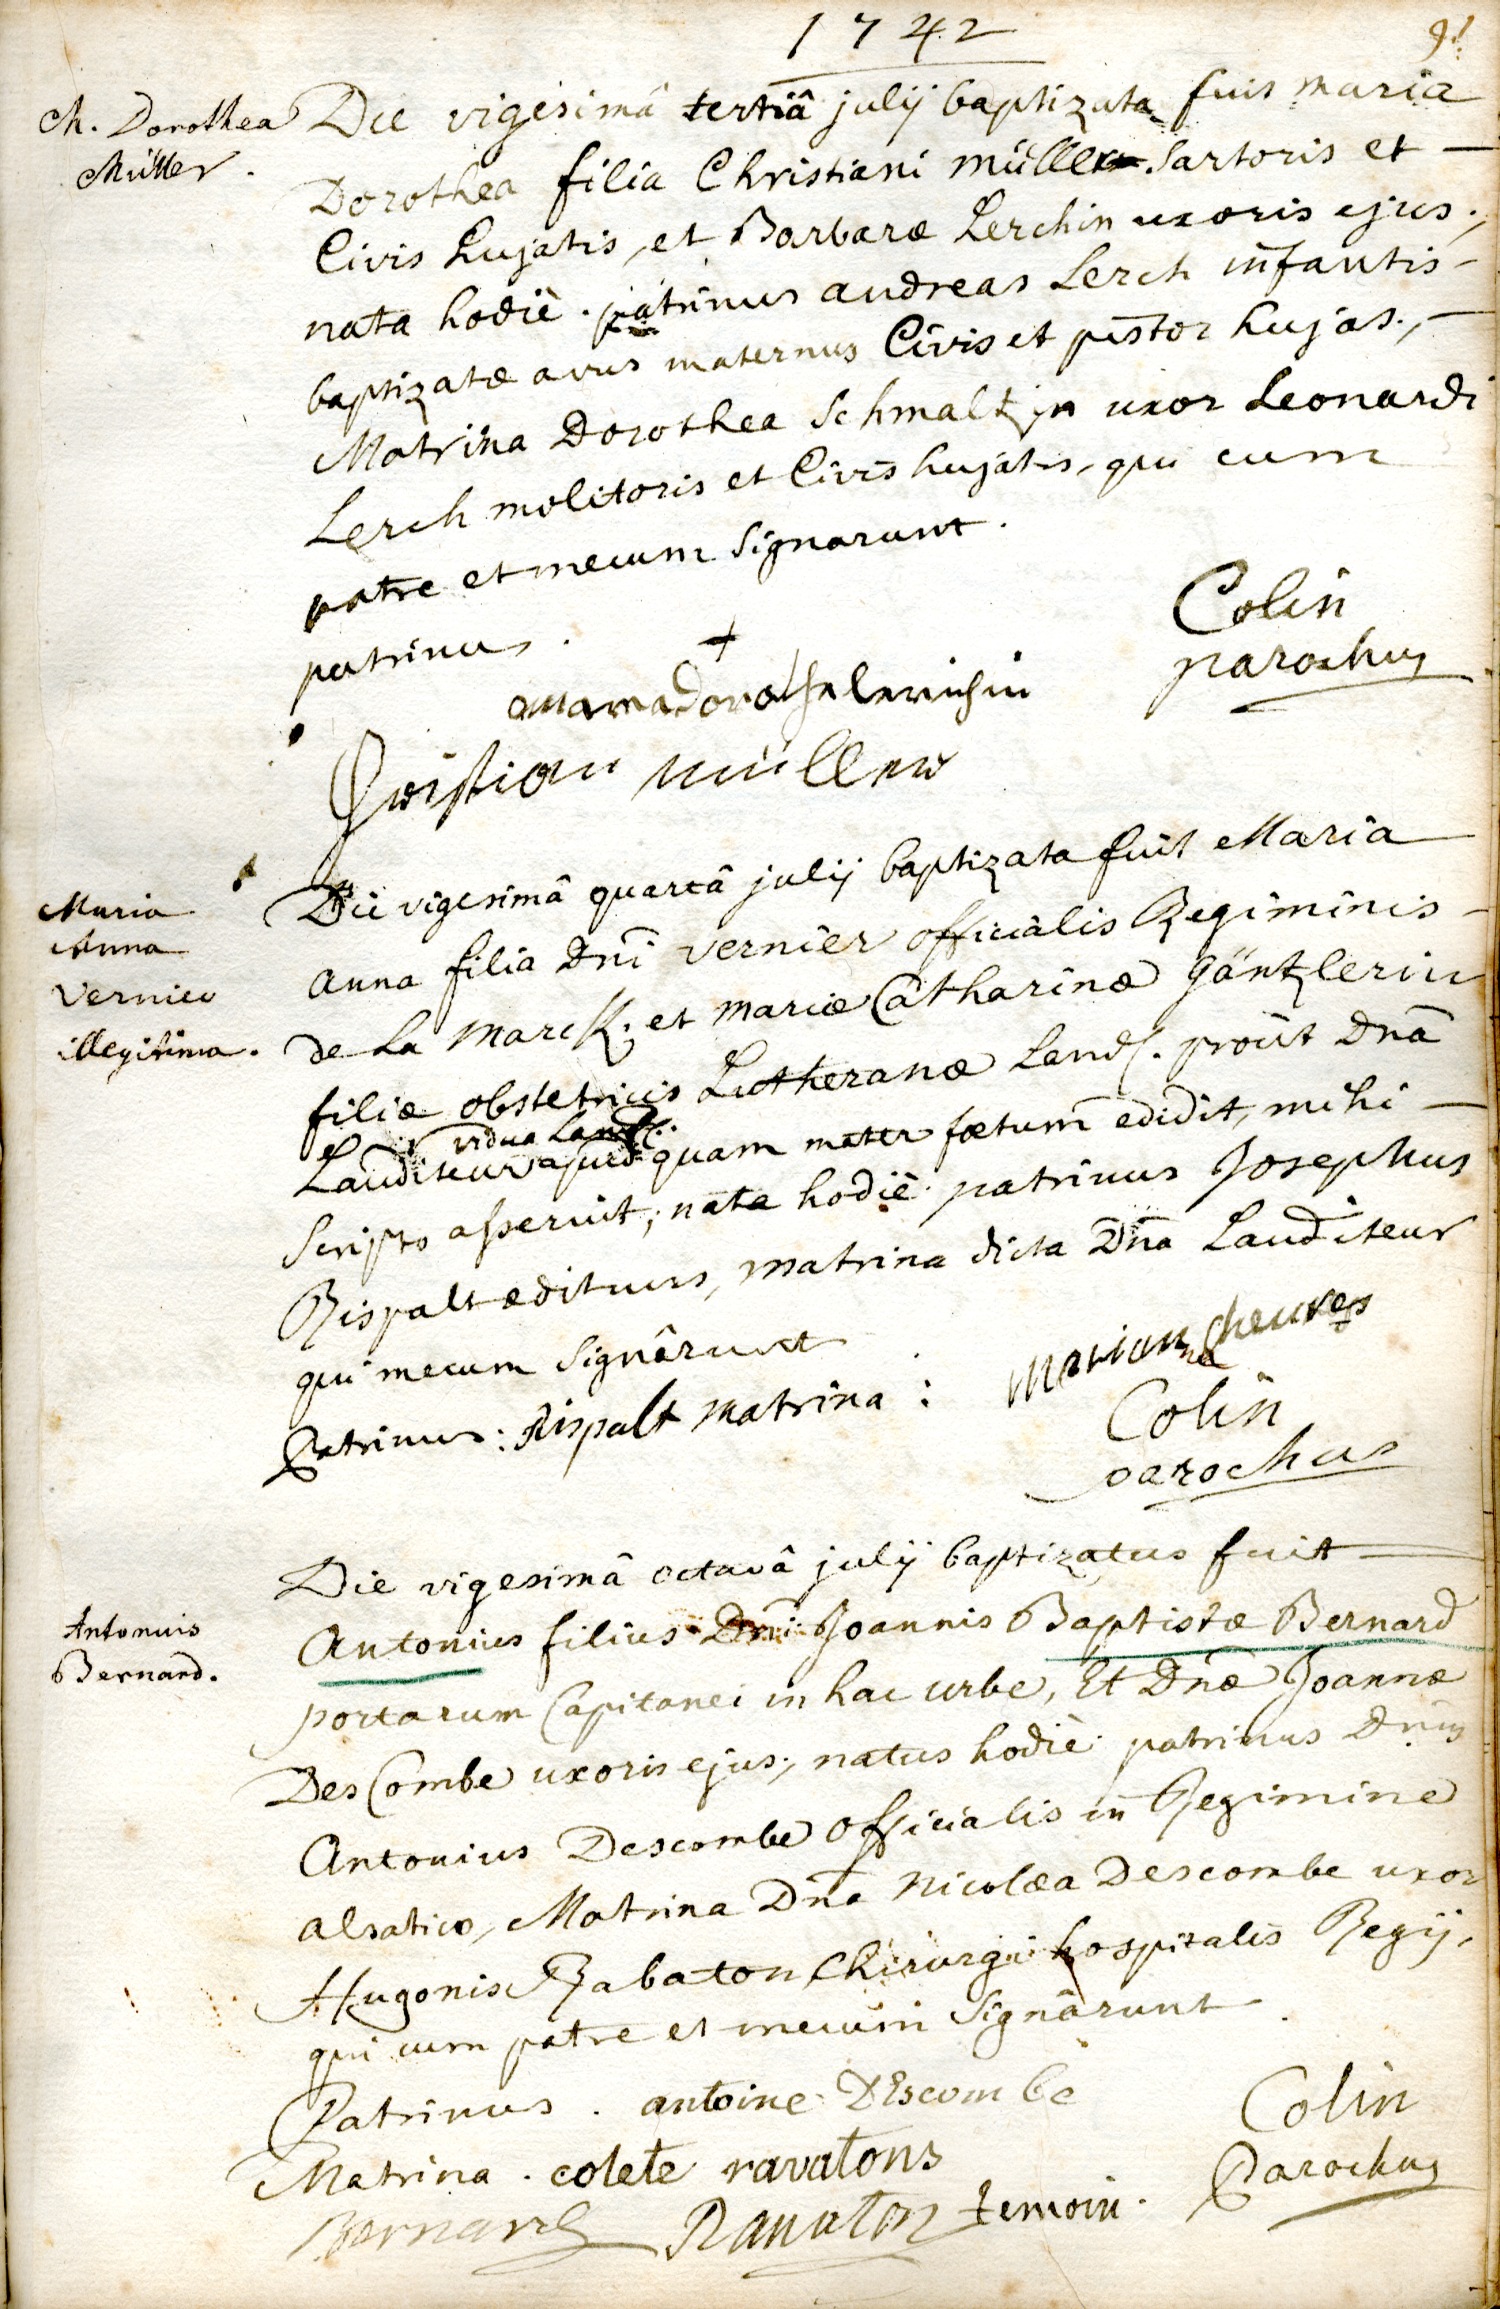 1742
91
M. Dorothea
Müller.
Die vigesimâ tertiâ julij baptizata fuit maria
Dorothea filia Christiani müller Sartoris et
Civis hujatis, et Barbaræ Lerchin uxoris ejus,
nata hodiè. patrinus andreas Lerch infantis
baptizatæ avus maternus Civis et pistor hujas.,
Matrina Dorothea Schmaltzin uxor Leonardi
Lerch molitoris et Civis hujatis, qui cum
patre et mecum Signarunt.
patrinus. +
Colin
parochus
Christian müller
Maria
Anna
Vernier
illegitima.
Die vigesimâ quartâ julij baptizata fuit Maria
anna filia Dni vernier officialis Regiminis
de La Marck; et mariæ Catharinæ Gäntzlerin
filiæ obstetricis Lutheranæ Land. proüt Dnã
vidua Land.
Lauditeur apud quam mater fœtum edidit, mihi
Scripto asseruit; nata hodiè. patrinus Josephus
Rispalt ædituus, matrina dicta Dña Lauditeur
qui mecum Signârunt
Patrinus: Rispalt matrina:
Colin
parochus
Antonius
Bernard.
Die vigesimâ octavâ julij baptizatus fuit
Antonius filius Dni Joannis Baptistæ Bernard
portarum Capitanei in hac urbe, Et Dnæ Joannæ
DesCombe uxoris ejus; natus hodiè. patrinus Dnus
Antonius Descombe officialis in Regimine
alsatico, Matrina Dña Nicolæa Descombe uxor
Hugonis Rabaton Chirurgi hospitalis Regij,
qui cum patre et mecum Signârunt
Patrinus. antoine DEscombe
Colin
Matrina. colete ravatons
Parochus
Bernard Ravaton temoin.